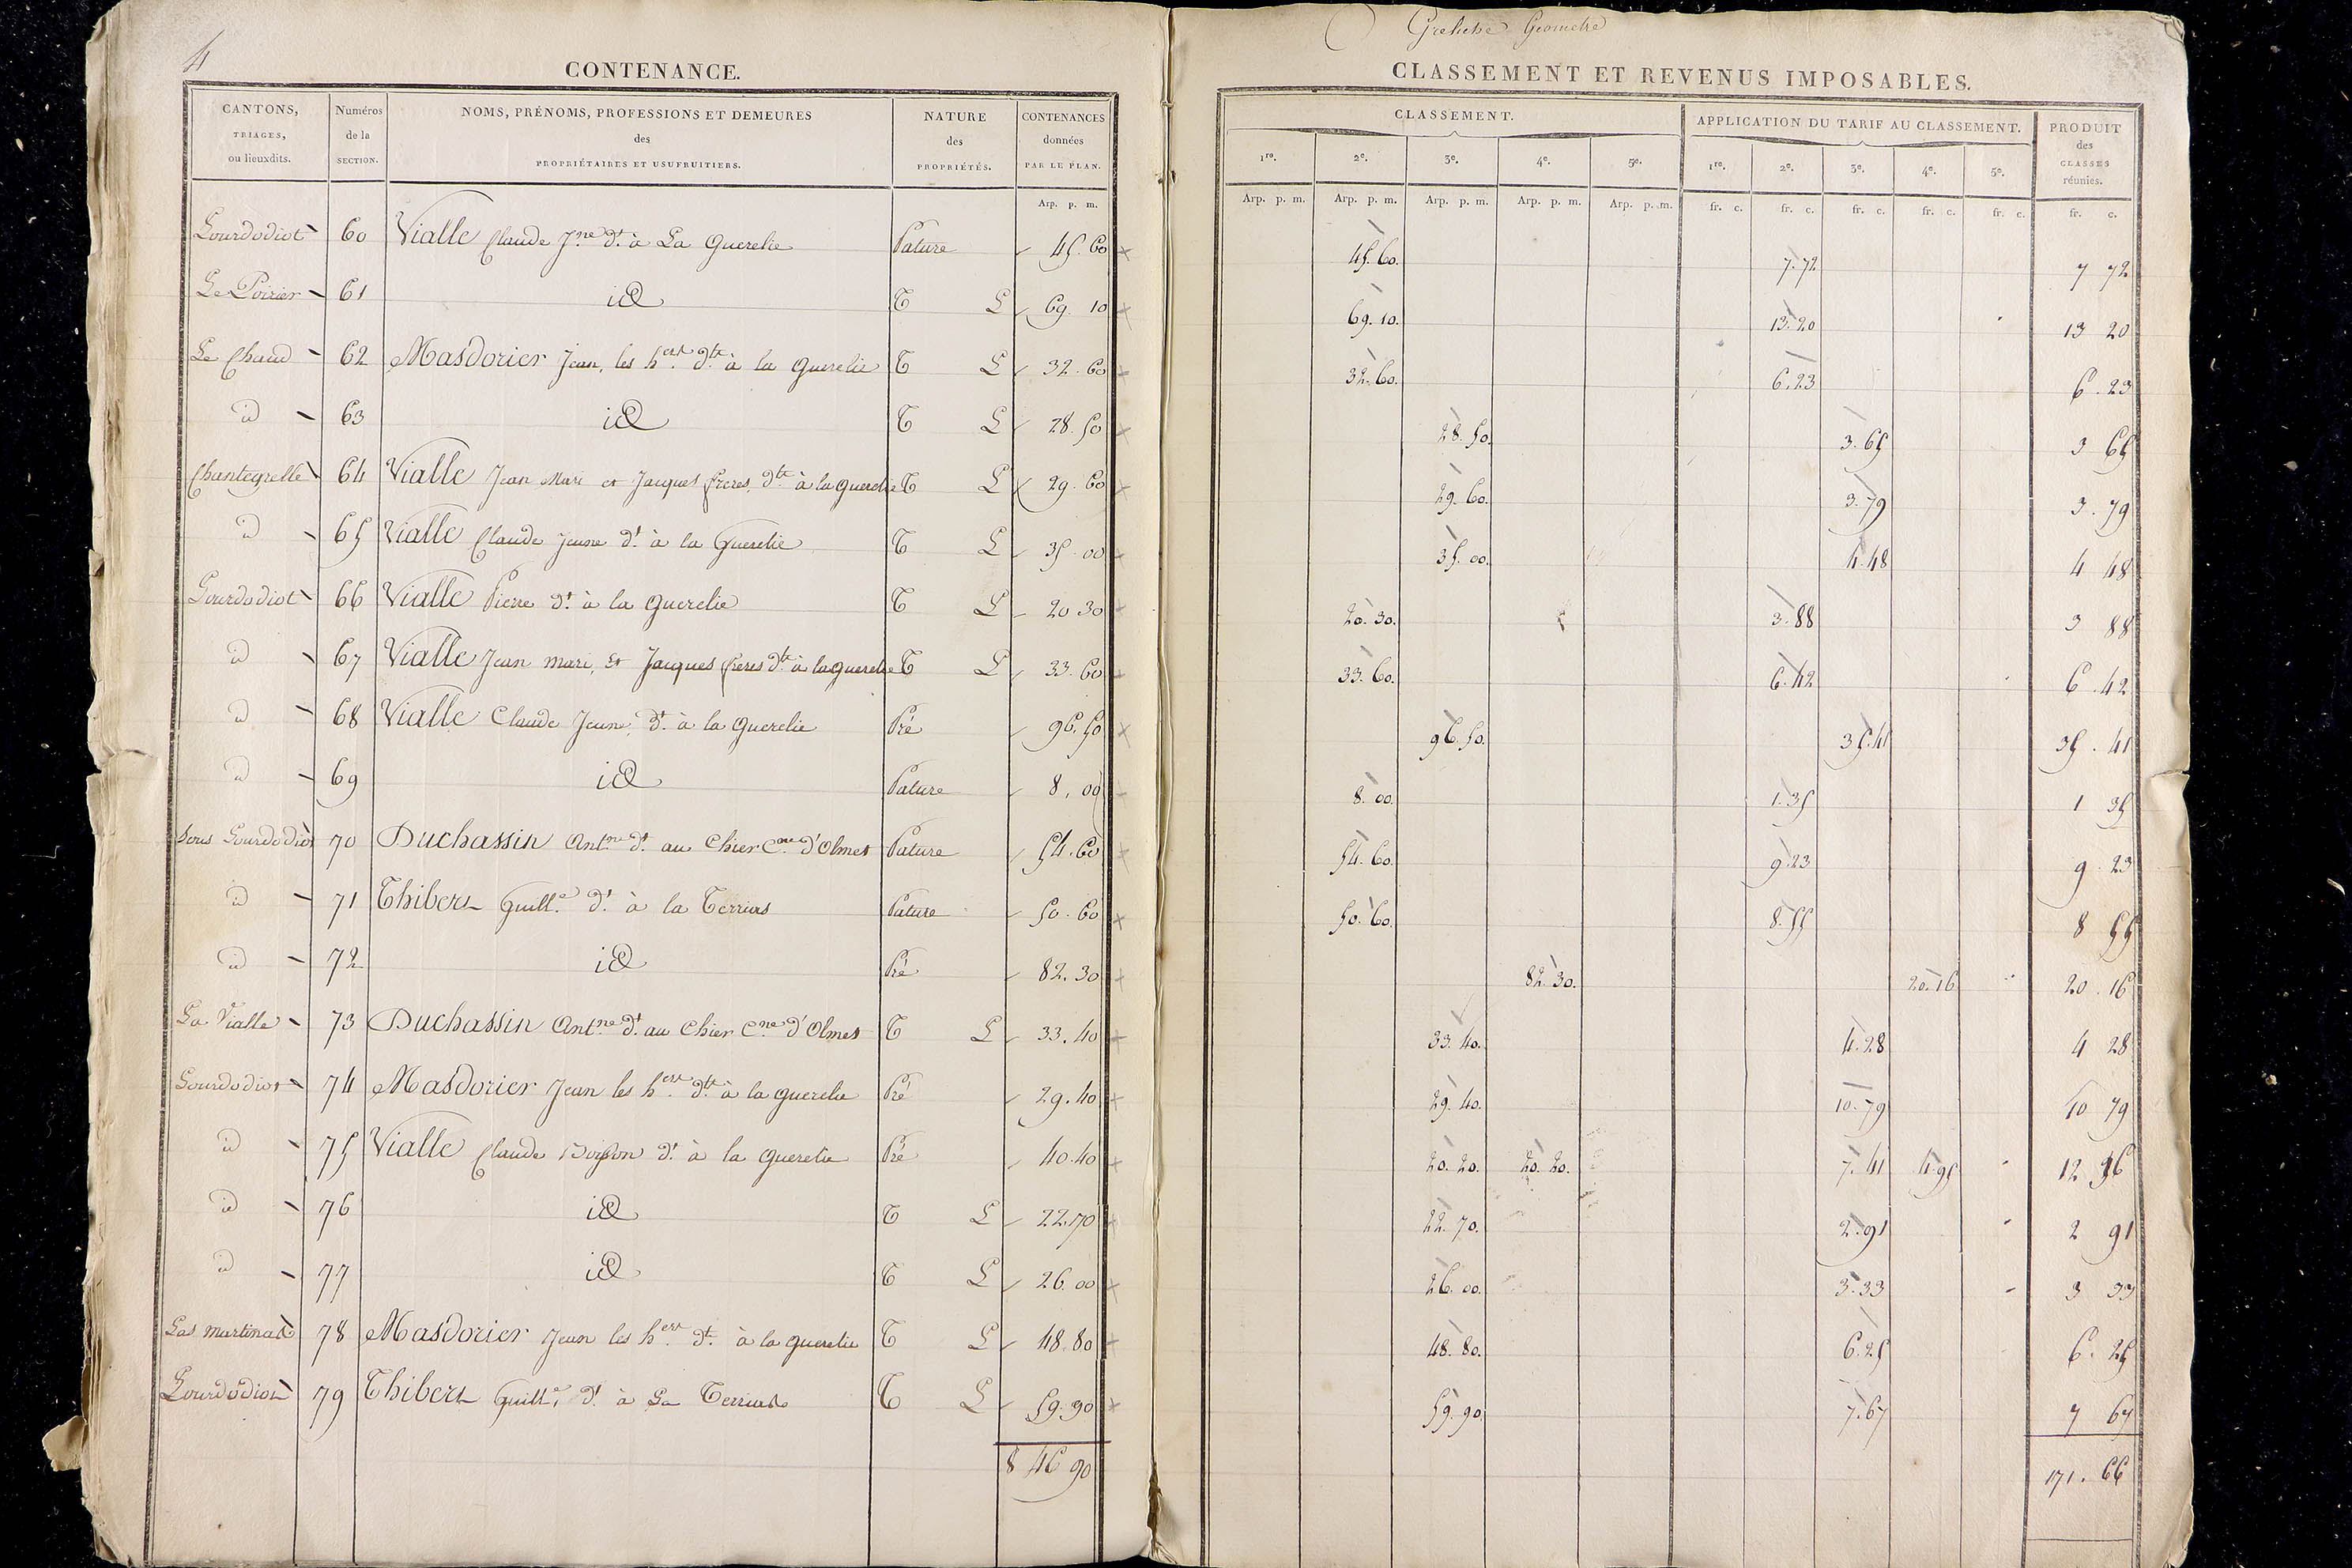 4
CONTENANCE.
CANTONS, TRIAGES, ou lieuxdits.
Numéros de la SECTION.
NOMS, PRÉNOMS, PROFESSIONS ET DEMEURES des PROPRIÉTAIRES ET USUFRUITIERS.
NATURE des PROPRIÉTÉS.
CONTENANCES données PAR LE PLAN.
Arp. p. m.
Géometre
CLASSEMENT ET REVENUS IMPOSABLES.
CLASSEMENT.
APPLICATION DU TARIF AU CLASSEMENT.
PRODUIT des CLASSES réunies.
1re. 2e. 3e. 4e. 5e. 1re. 2e. 3e. 4e. 5e.
Arp. p. m. Arp. p. m. Arp. p. m. Arp. p. m. Arp. p. m. fr. c. fr. c. fr. c. fr. c. fr. c. fr. c.
Gourdodiot 60 Vialle Claude Jne dt à La Querelie Pature 45. 60 45. 60. 7. 72 7 72
Le Poirier 61 id T L 69. 10 69. 10. 13. 20 13 20
Le Chaud 62 Masdorier Jean, les hers dts à la Querelie T L 32. 60 32. 60. 6. 23 6. 23
id 63 id T L 28. 50 28. 50. 3. 65 3 65
Chantegrelle 64 Vialle Jean Mari et Jacques freres, dts à la Querelie T L 29. 60 29. 60. 3. 79 3. 79
id 65 Vialle Claude Jeune dt à la Querelie T L 35. 00 35. 00. 4. 48 4 48
Gourdodiot 66 Vialle Pierre dt à la Querelie T L 20 30 20. 30. 3. 88 3 88
id 67 Vialle Jean mari, et Jacques freres dts à la Querelie T L 33. 60 33. 60. 6. 42 6. 42
id 68 Vialle Claude Jeune, dt à la Querelie Pré 96. 50 96. 50. 35. 41 35. 41
id 69 id Pature 8, 00 8. 00. 1. 35 1 35
Sous Gourdodiot 70 Duchassin Antne dt au Chier Cne d'Olmet Pature 54. 60 54. 60. 9. 23 9. 23
id 71 Thibert Guille dt à la Terrias Pature 50. 60 50. 60. 8. 55 8 55
id 72 id Pré 82. 30 82. 30. 20. 16 20. 16
La Vialle 73 Duchassin Antne dt au Chier Cne d'Olmet T L 33. 40 33. 40. 4. 28 4 28
Gourdodiot 74 Masdorier Jean les hers dts à la Querelie Pré 29. 40 29. 40. 10. 79 10 79
id 75 Vialle Claude dt à la Querelie Pré 40. 40 20. 20. 20. 20. 7. 41 4. 95 12 36
id 76 id T L 22. 70 22. 70. 2. 91 2 91
id 77 id T L 26. 00 26. 00. 3. 33 3 33
Las Martinas 78 Masdorier Jean les hers dt à la Querelie T L 48. 80 48. 80. 6. 25 6. 25
Gourdodiot 79 Thibert Guille dt à La Terrias T L 59. 90 59. 90. 7. 67 7 67
8 46 90 171. 66